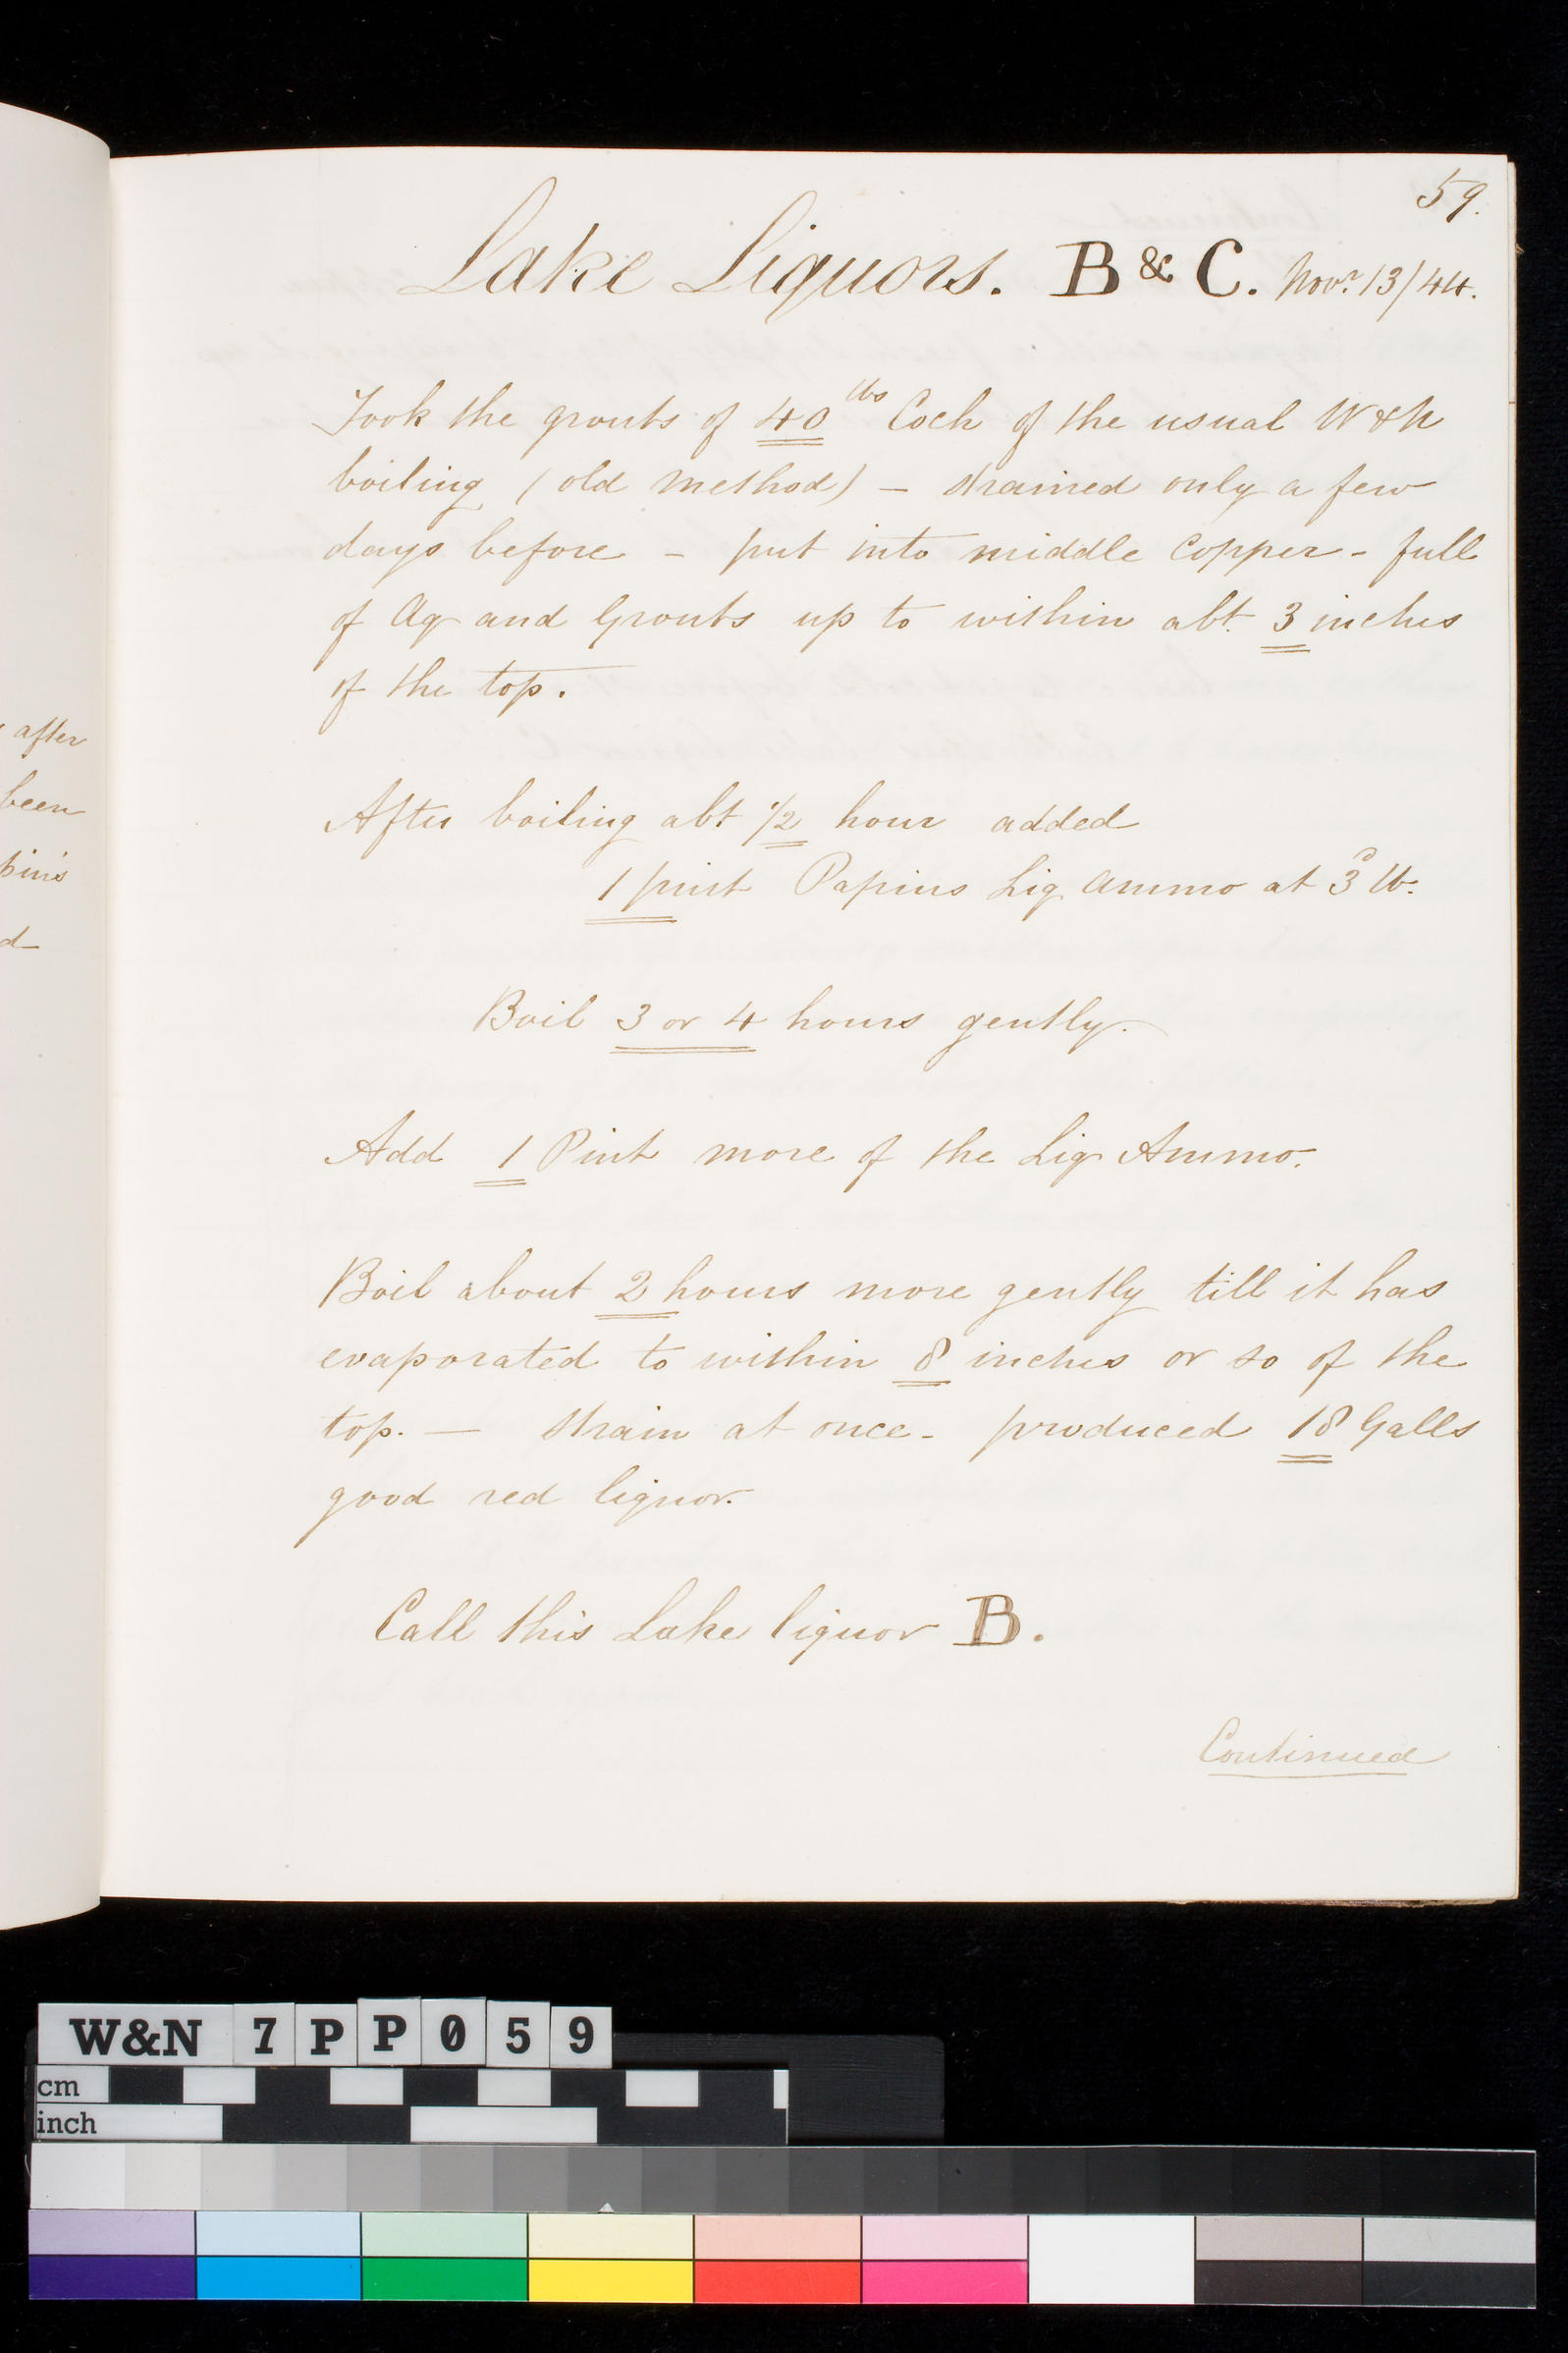 59.
Lake Liquors. B & C. Novr. 13/44.
Took the grouts of 40 lbs Coch of the usual W & N
boiling (old method) - strained only a few
days before - put into middle copper - full
of Aq and Grouts up to within abt. 3 inches
of the top.
after
been
pin's
d
After boiling abt 1/2 hour added
1 pint Papins Liq Ammo at 3d lb.
Boil 3 or 4 hours gently.
Add 1 Pint more of the Liq Ammo.
Boil about 2 hours more gently till it has
evaporated to within 8 inches or so of the
top. — strain at once - produced 18 Galls
good red liquor.
Call this Lake liquor B.
Continued
W&N 7PP059
cm
inch